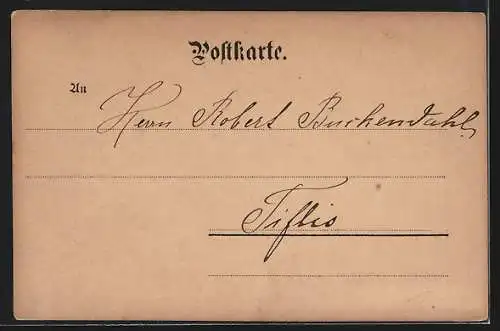 Postkarte.
An
Herrn Robert Buchendahl
Tiflis